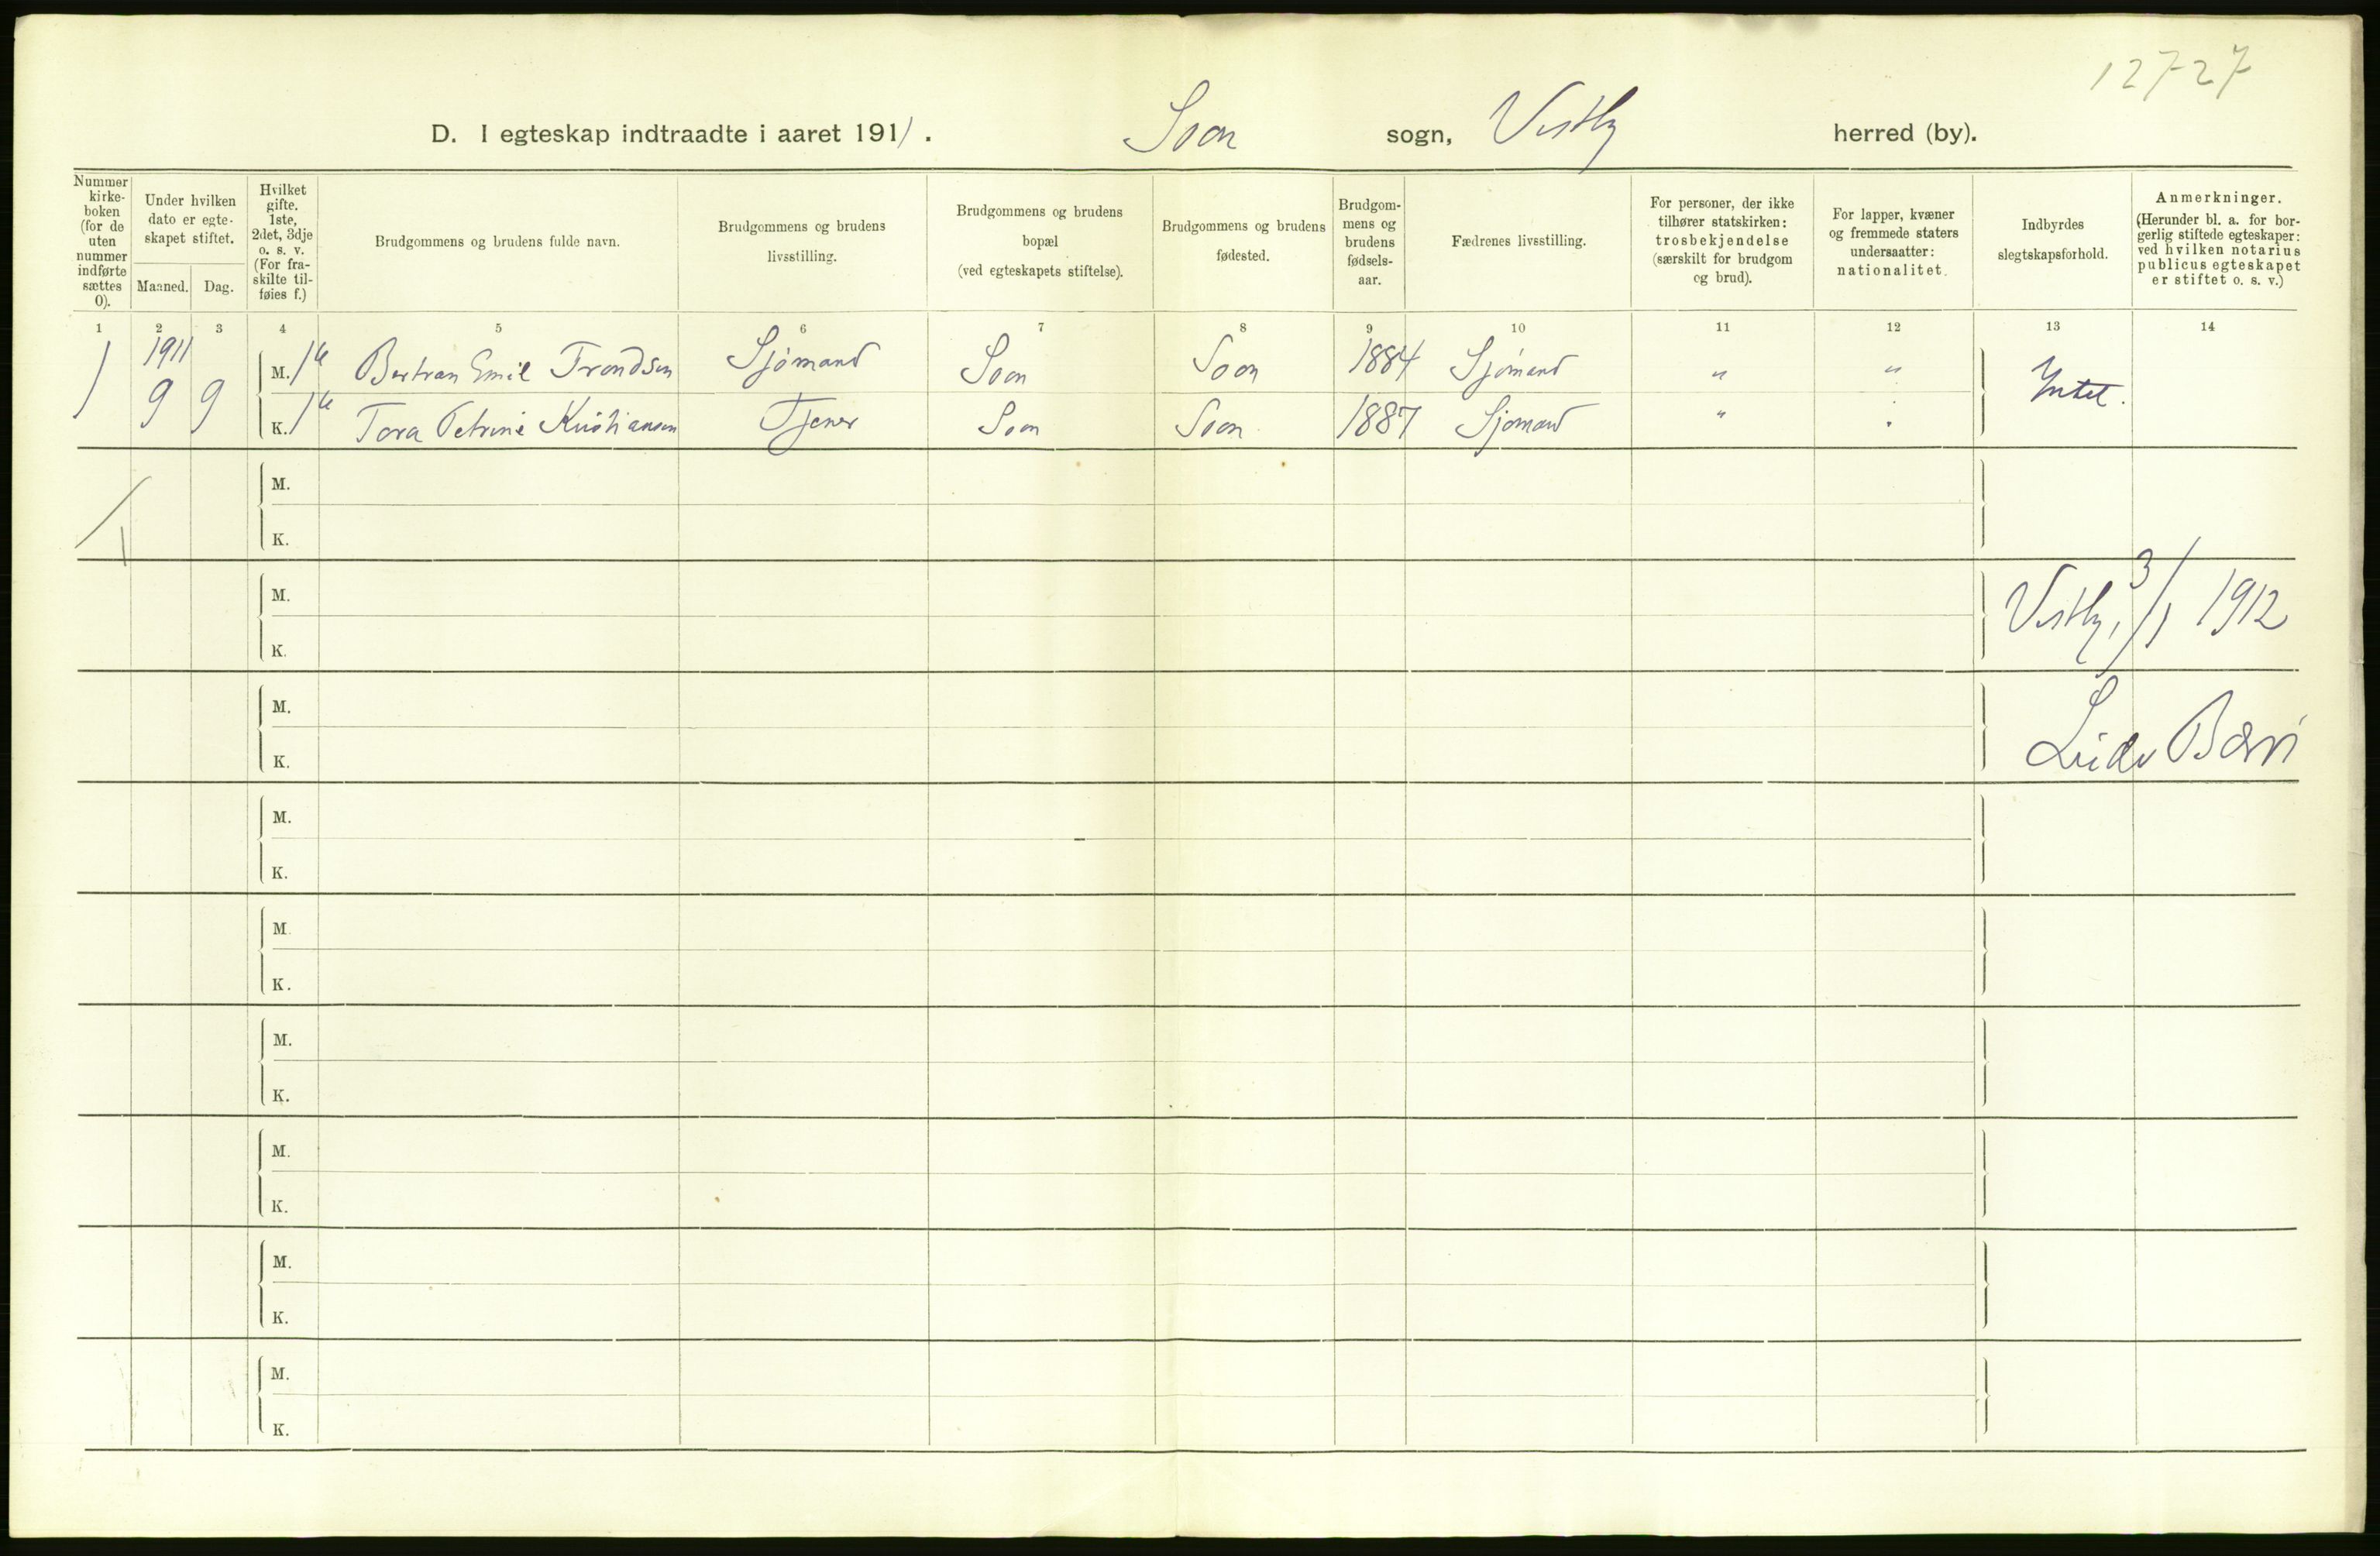 12727
D. I egteskap indtraadte i aaret 1911. Soon sogn, Vestby herred (by).
Nummer kirke-boken (for de uten nummer indførte sættes 0).
Under hvilken dato er egte-skapet stiftet.
Maaned. Dag.
Hvilket gifte. 1ste, 2det, 3dje o. s. v. (For fra-skilte til-føies f.)
Brudgommens og brudens fulde navn.
Brudgommens og brudens livsstilling.
Brudgommens og brudens bopæl (ved egteskapets stiftelse).
Brudgommens og brudens fødested.
Brudgom-mens og brudens fødsels-aar.
Fædrenes livsstilling.
For personer, der ikke tilhører statskirken: trosbekjendelse (særskilt for brudgom og brud).
For lapper, kvæner og fremmede staters undersaatter: nationalitet.
Indbyrdes slegtskapsforhold.
Anmerkninger. (Herunder bl. a. for bor-gerlig stiftede egteskaper: ved hvilken notarius publicus egteskapet er stiftet o. s. v.)
1 2 3 4 5 6 7 8 9 10 11 12 13 14
1911
1 9 9 M. 1ste Bertran Emil Trondsen Sjömand Soon Soon 1884 Sjömand " " Intet.
K. 1ste Tora Petrine Kristiansen Tjener Soon Soon 1887 Sjömand "
M.
K.
1
M.
K.
Vestby, 3/1 1912
M.
K.
M.
K.
M.
K.
M.
K.
M.
K.
M.
K.
M.
K.